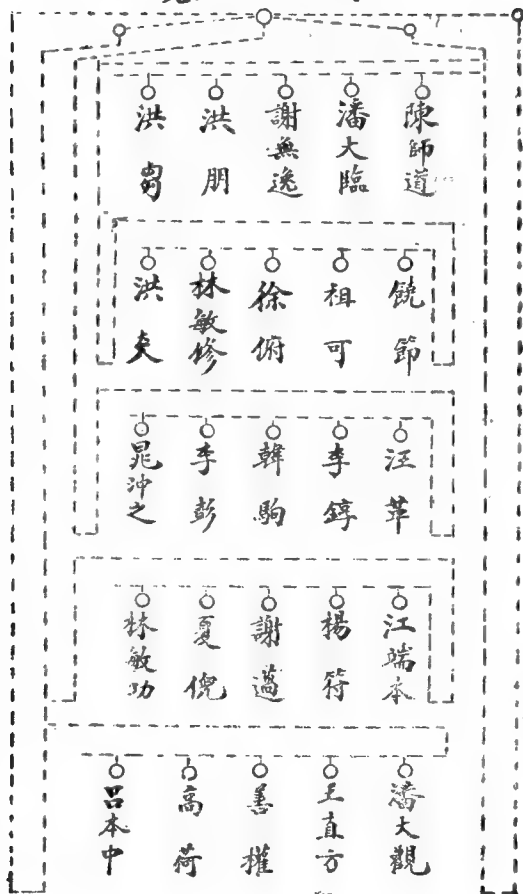 陳師道
潘大臨
謝無逸
洪朋
洪芻
饒節
祖可
徐俯
林敏修
洪炎
汪革
李錞
韓駒
李彭
晁沖之
江端本
楊符
謝薖
夏倪
林敏功
潘大觀
王直方
善權
高荷
呂本中